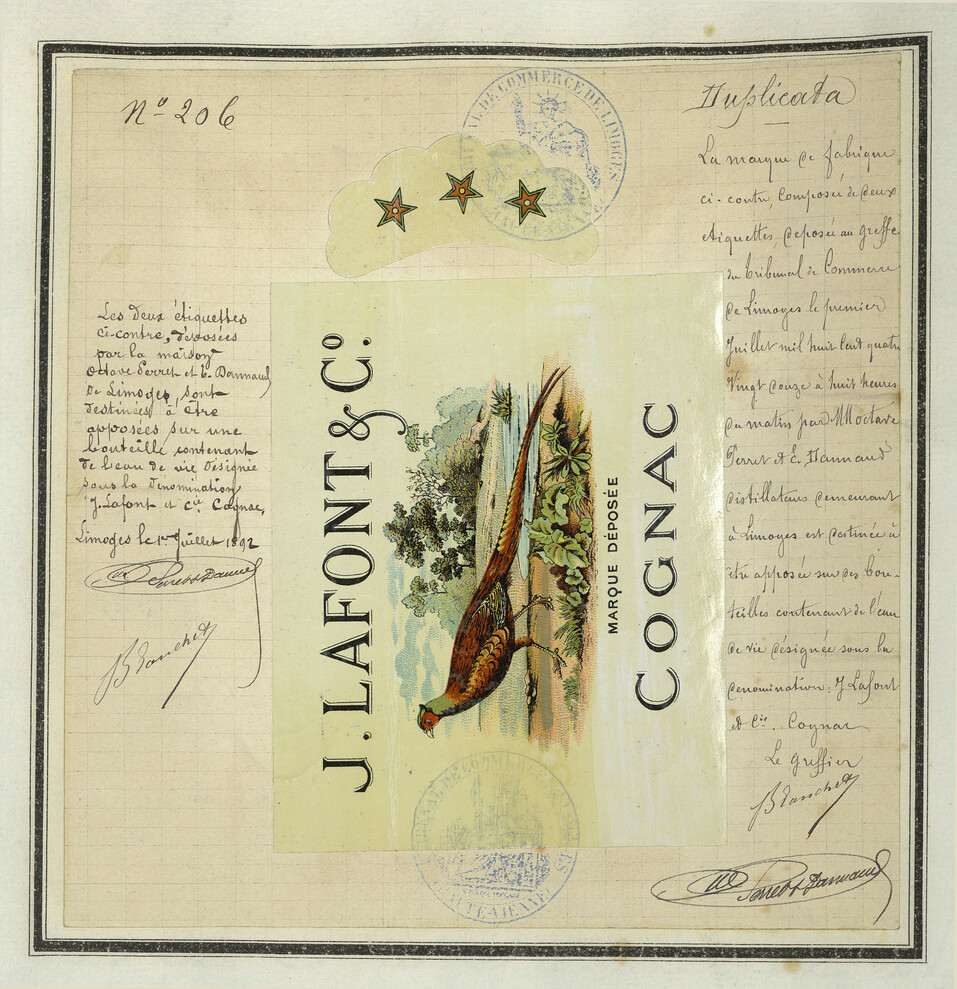 Nº 206
Les deux étiquettes
ci-contre, déposées
par la maison
Octave Perret et E. Dannaud
de Limoges, sont
destinées à être
apposées sur une
bouteille contenant
de l'eau de vie désignée
sous la dénomination
J. Lafont et Cie Cognac,
Limoges le 1er Juillet 1892
Perret & Dannaud
Blanchet
TRIBUNAL DE COMMERCE DE LIMOGES
HAUTE-VIENNE
J. LAFONT & Cº.
MARQUE DÉPOSÉE
COGNAC
TRIBUNAL DE COMMERCE DE LIMOGES
HAUTE-VIENNE
Duplicata
La marque de fabrique
ci-contre, composée de deux
étiquettes, déposée au greffe
du tribunal de Commerce
de Limoges le premier
Juillet mil huit cent quatre
vingt douze à huit heures
du matin par MM Octave
Perret et E. Dannaud
distillateurs demeurant
à Limoges est destinée à
être apposée sur des bou-
teilles contenant de l'eau
de vie désignée sous la
denomination: J Lafont
et Cie. Cognac
Le Greffier
Blanchet
Perret & Dannaud